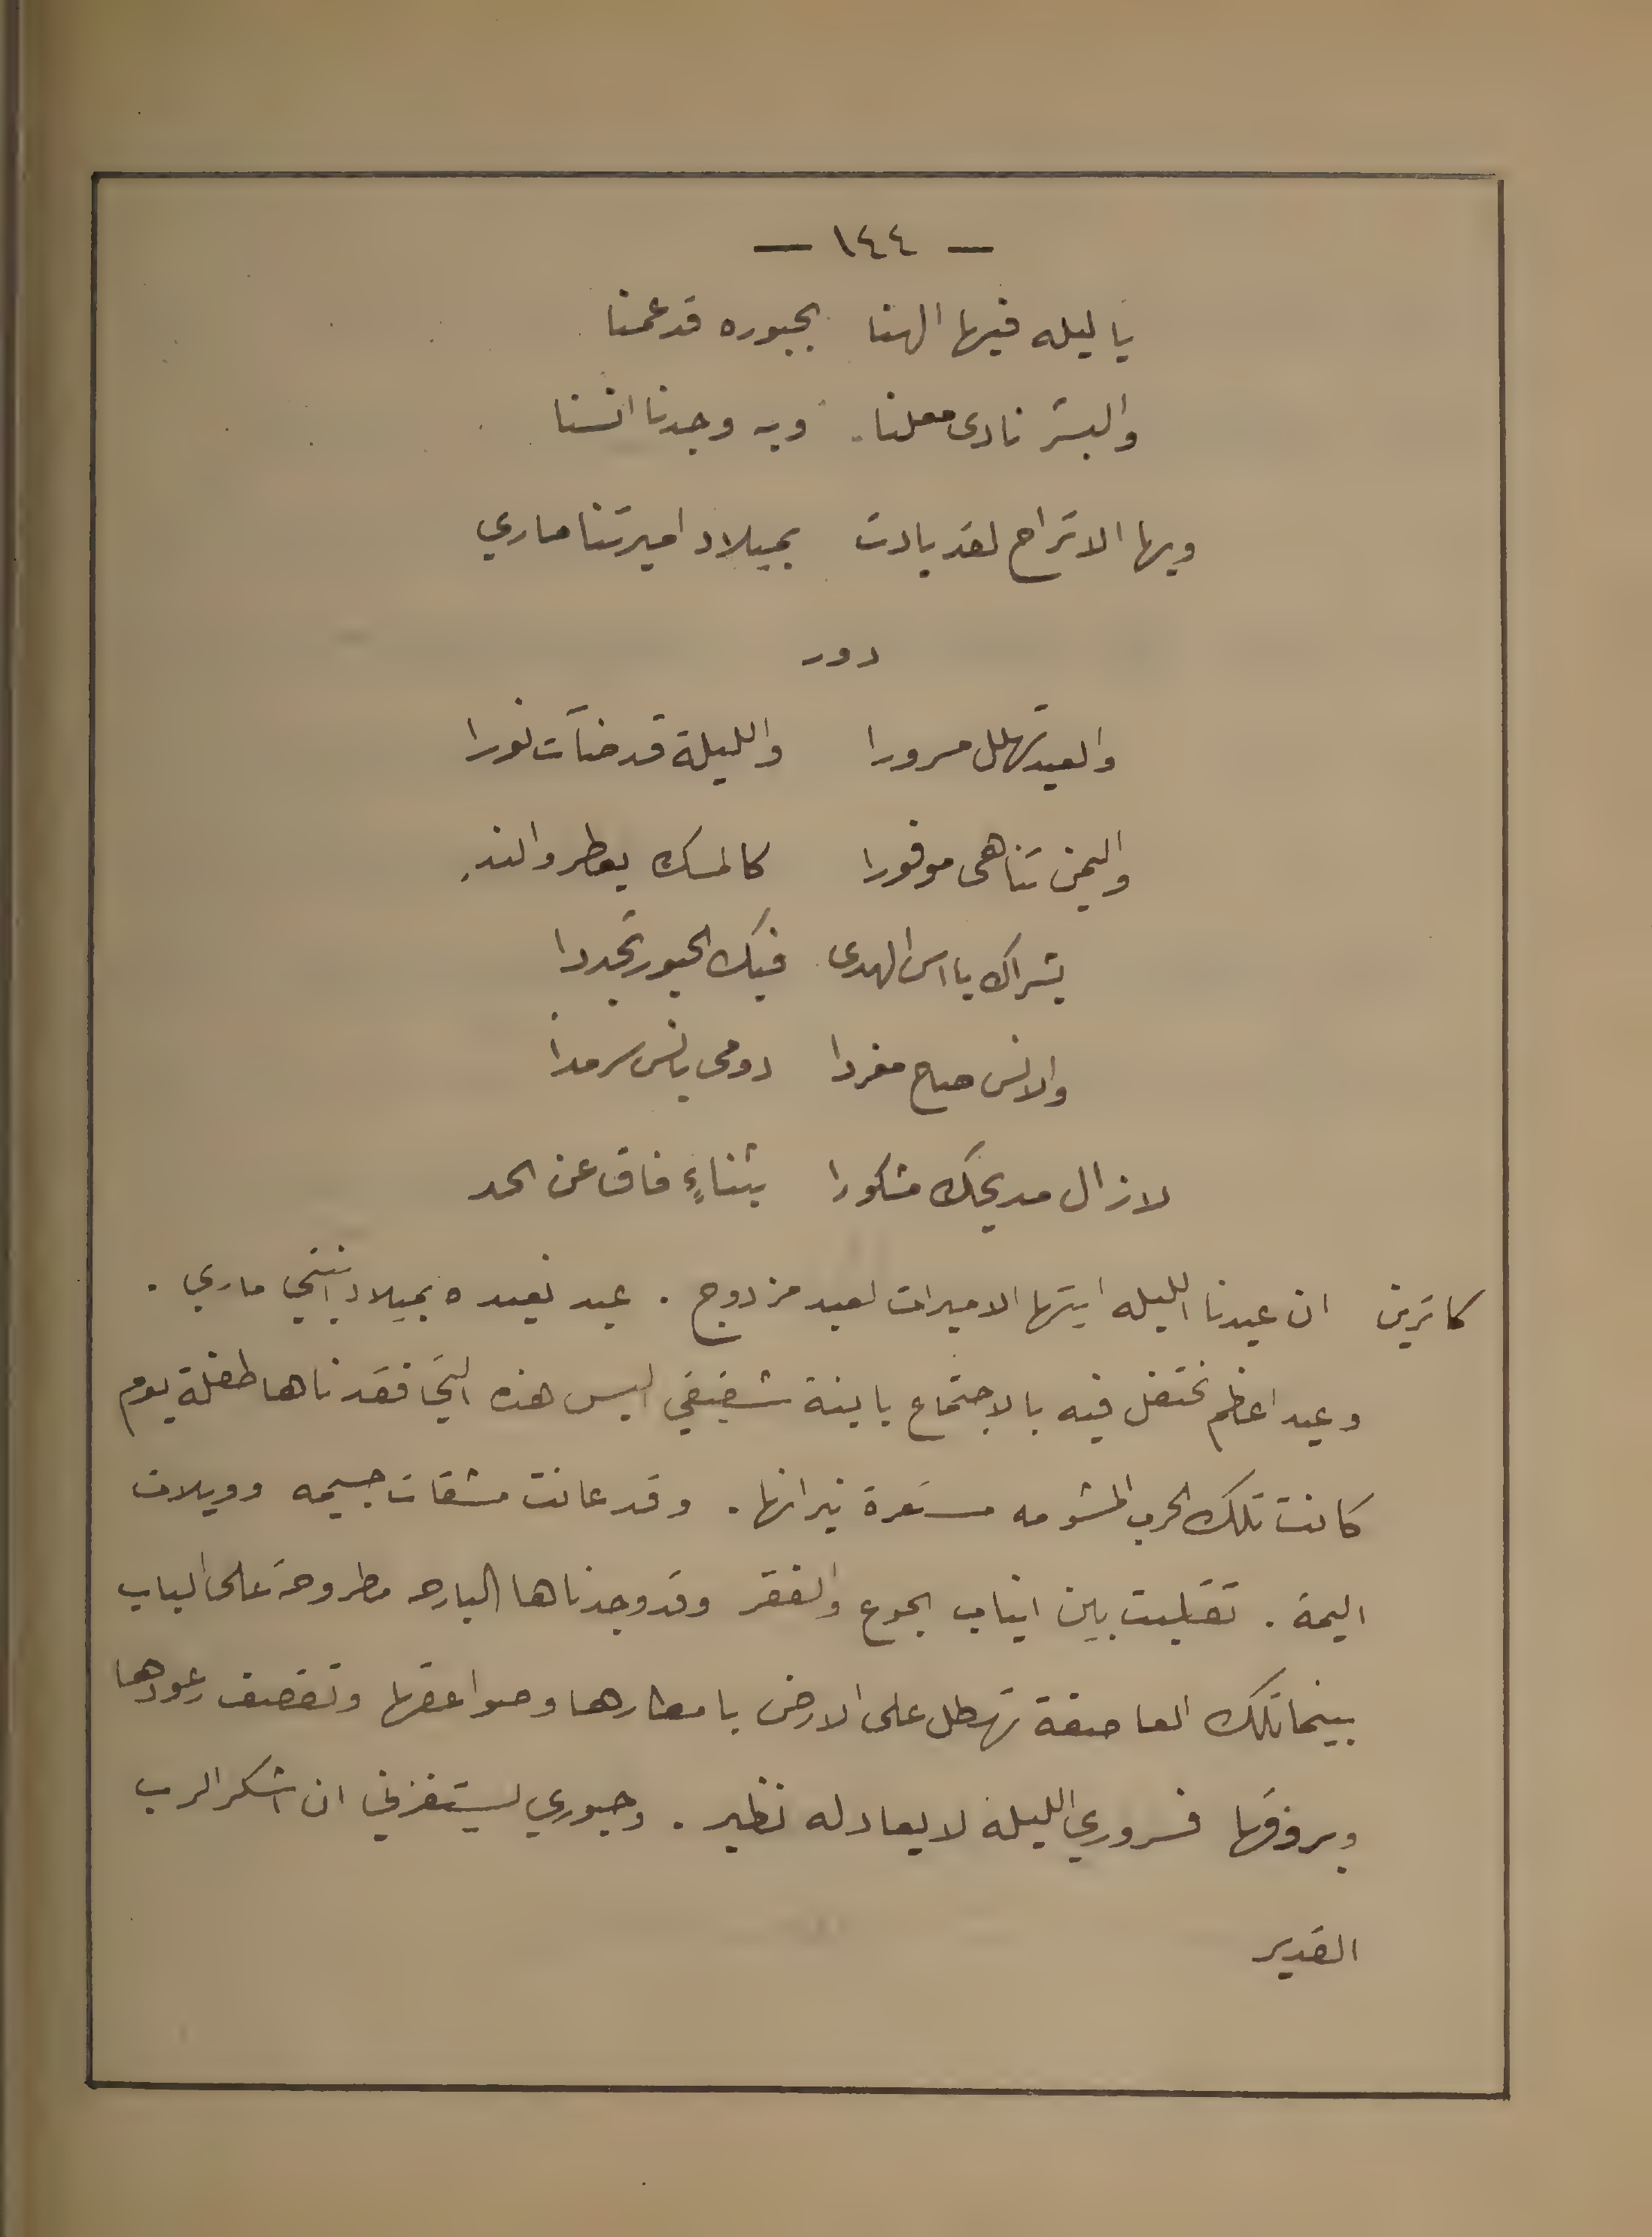 — ١٤٤ —
يا ليله فيها الهنا بحبوره قد عمنا
والبشر نادى معلنا. وبه وجدنا انسنا
وبها الاتراح لقد بادت بميلاد اميرتنا ماري
دور
والعيد تهلل سرورا والليلة قد ضآت نورا
واليمن تناهى موفورا كالمسك يعطر والند
بشراك يا اس الهدى فيك الحبور تجددا
والانس صاح مغردا دومى بانس سرمدا
لازال مديحك مشكورا بثناءٍ فاق عن الحمد
كاترين ان عيدنا الليله ايتها الاميرات لعيد مزدوج . عيد نعيده بميلاد ابنتي ماري .
وعيد اعظم نحتفل فيه بالاجتماع بابنة شقيقي اليس هذه التي فقدناها طفلة يوم
كانت تلك الحرب المشومه مستعرة نيرانها . وقد عانت مشقات جسيمه وويلات
اليمة . تقلبت بين انياب الجوع والفقر وقد وجدناها البارحه مطروحة على الباب
بينما تلك العاصفة تهطل على الارض بامطارها وصواعقها وتقصف رعودها
وبروقها فسروري الليله لا يعادله نظير . وحبوري ليستفزني ان اشكر الرب
القدير